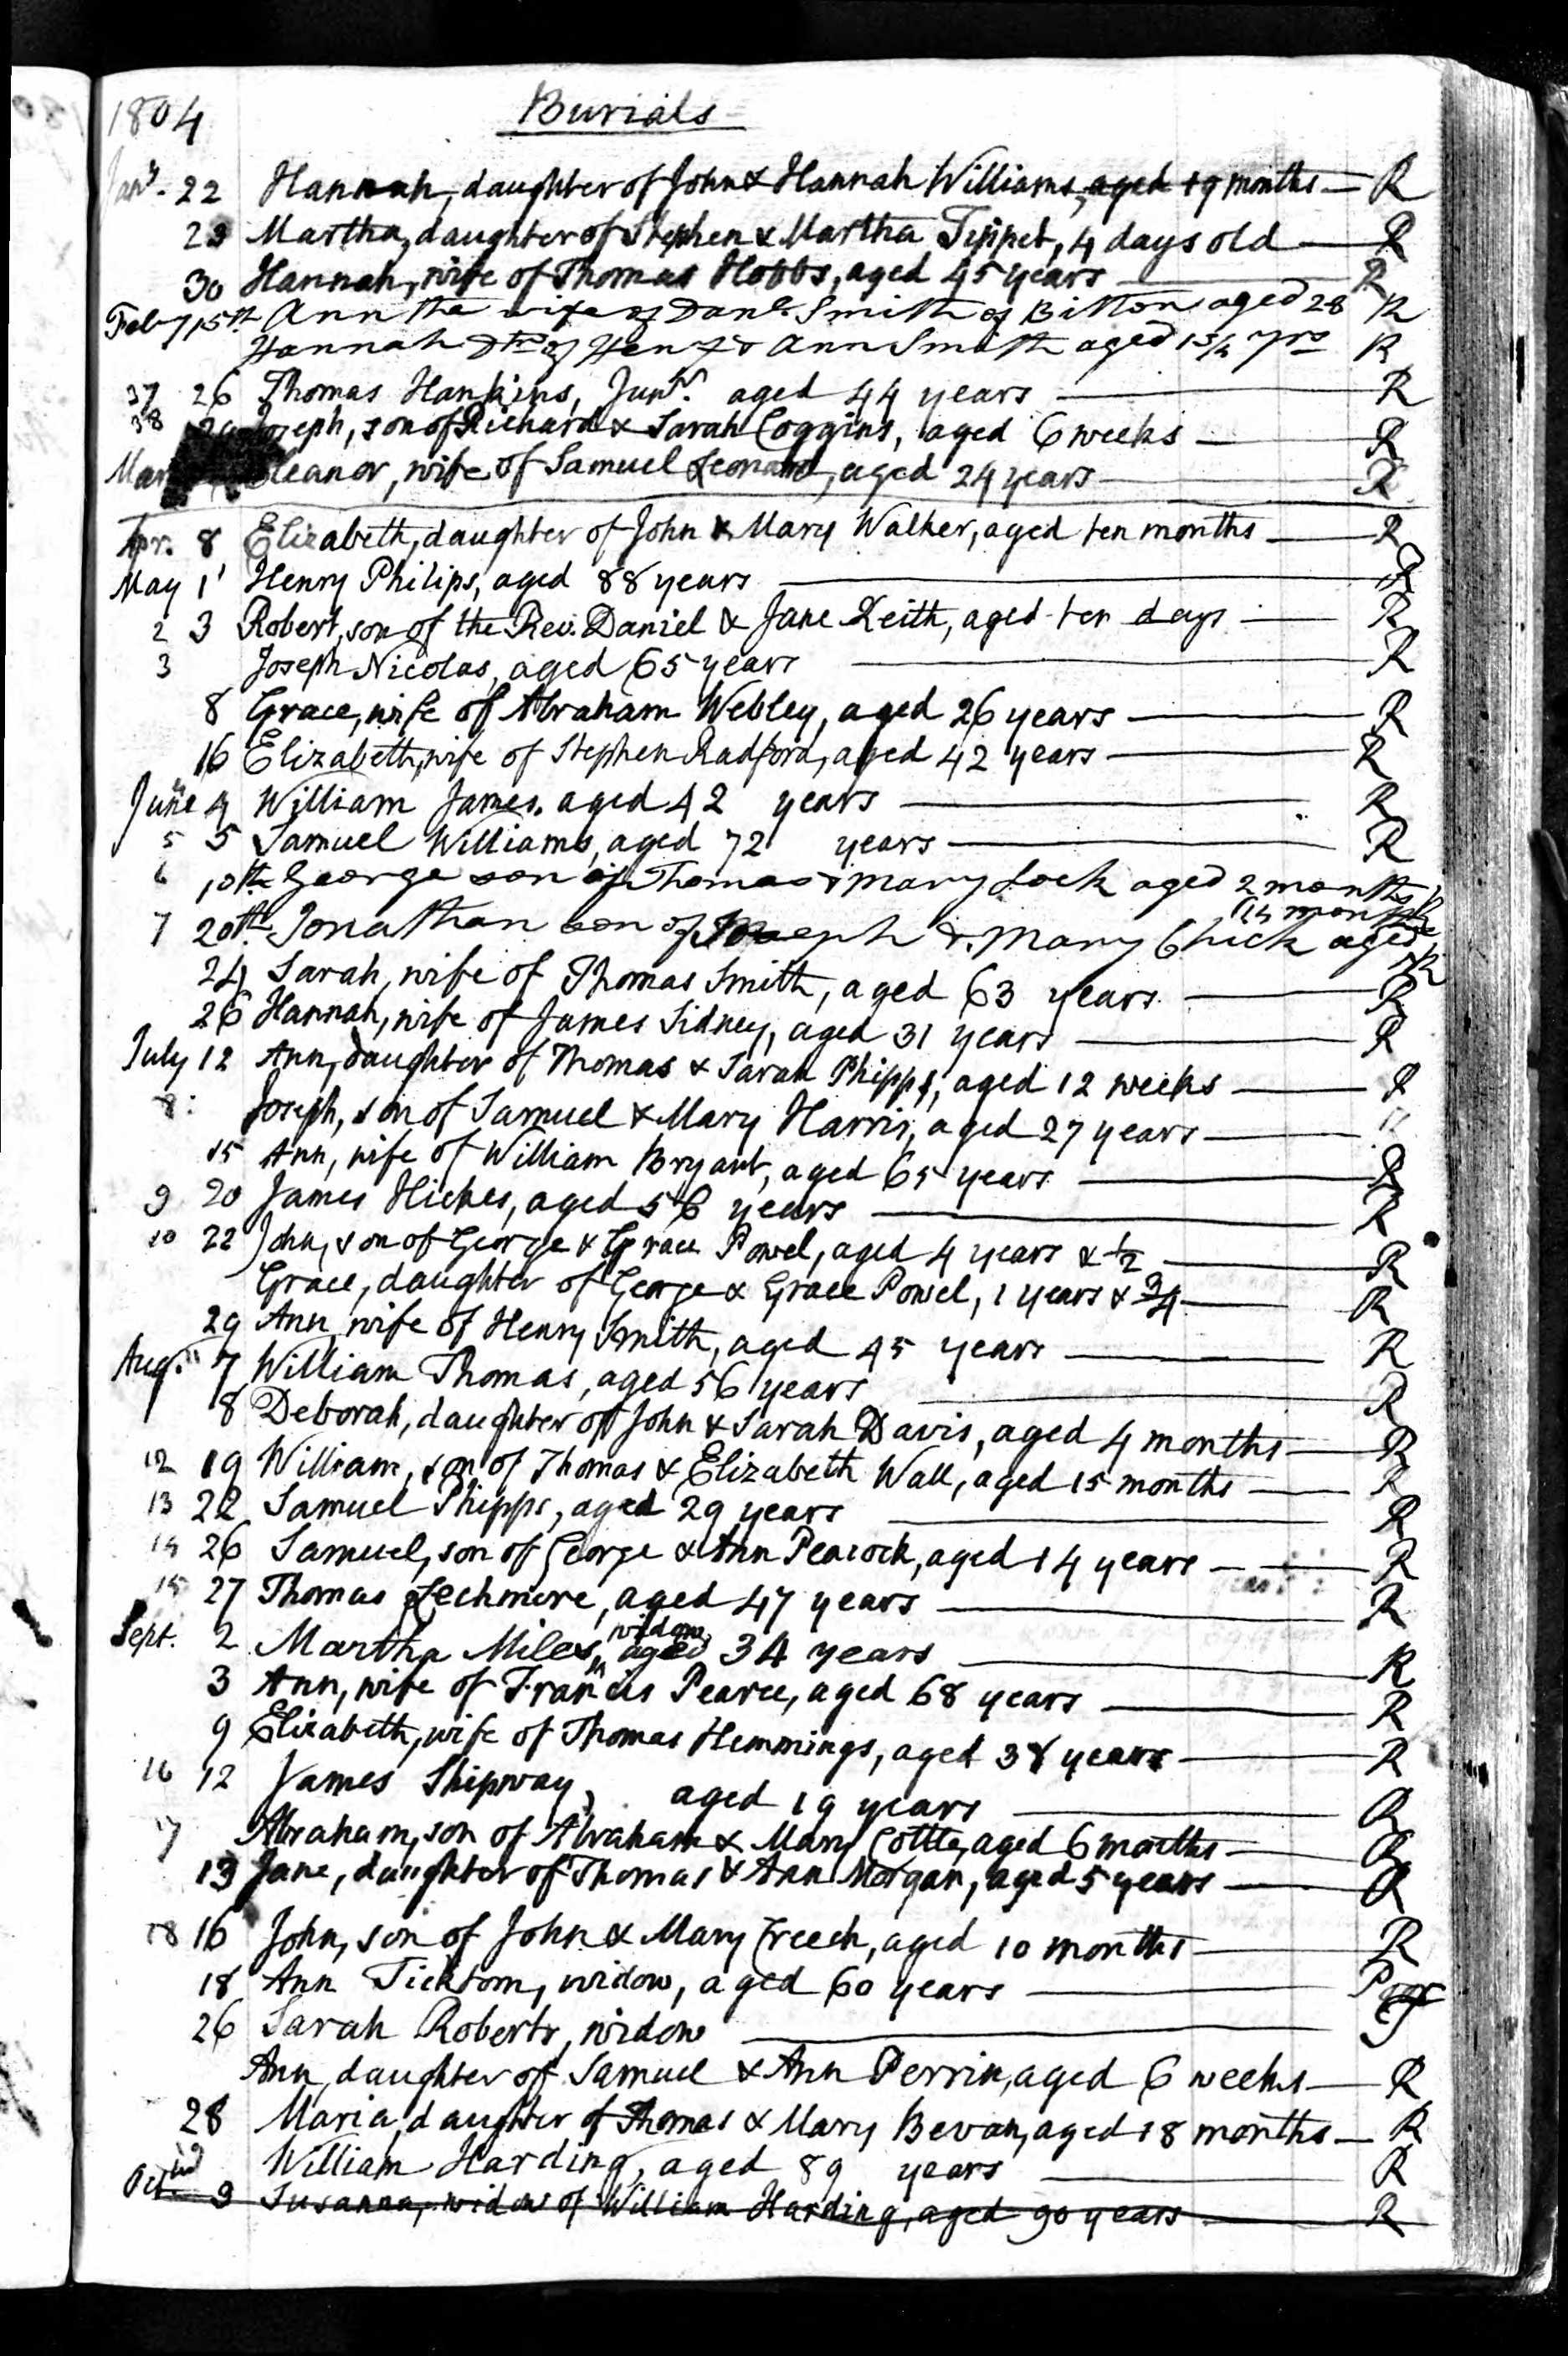 1804
Burials
Jany. 22 Hannah, daughter of John & Hannah Williams, aged 19 months — R
29 Martha, daughter of Stephen & Martha Tippet, 4 days old — R
30 Hannah, wife of Thomas Hobbs, aged 45 years — R
Feby 15th Ann the wife of Danl Smith of Bitton aged 28 R
Hannah Dtr of Heny & Ann Smith aged 1 3/4 yrs R
37 26 Thomas Hankins, Junr. aged 44 years — R
38 Joseph, son of Richard & Sarah Coggins, aged 6 weeks — R
Mar Eleanor, wife of Samuel Leonard, aged 24 years — R
Apr. 8 Elizabeth, daughter of John & Mary Walker, aged ten months — R
May 1 Henry Philips, aged 88 years — R
2 3 Robert, son of the Rev. Daniel & Jane Keith, aged ten days — R
3 Joseph Nicolas, aged 65 years — R
8 Grace, wife of Abraham Webley, aged 26 years — R
16 Elizabeth, wife of Stephen Radford, aged 42 years — R
June 4 William James, aged 42 years — R
5 5 Samuel Williams, aged 72 years — R
6 10th George son of Thomas & Mary Lock aged 2 months R
7 20th Jonathan son of Joseph & Mary Chick aged
14 months R
24 Sarah, wife of Thomas Smith, aged 63 years — R
26 Hannah, wife of James Sidney, aged 31 years — R
July 12 Ann, daughter of Thomas & Sarah Phipps, aged 12 weeks — R
8 Joseph, son of Samuel & Mary Harris, aged 27 years — R
15 Ann, wife of William Bryant, aged 65 years — R
9 20 James Hickes, aged 56 years — R
10 22 John, son of George & Grace Powel, aged 4 years & 1/2 — R
Grace, daughter of George & Grace Powel, 1 years & 3/4 — R
29 Ann, wife of Henry Smith, aged 45 years — R
Aug. 11 7 William Thomas, aged 56 years — R
8 Deborah, daughter of John & Sarah Davis, aged 4 months — R
12 19 William, son of Thomas & Elizabeth Wall, aged 15 months — R
13 22 Samuel Phipps, aged 29 years — R
14 26 Samuel, son of George & Ann Peacock, aged 14 years — R
15 27 Thomas Lechmere, aged 47 years — R
Sept. 2 Martha Miles, widow, aged 34 years — R
3 Ann, wife of Francis Pearce, aged 68 years — R
9 Elizabeth, wife of Thomas Hemmings, aged 38 years — R
16 12 James Shipway, aged 19 years — R
17 Abraham, son of Abraham & Mary Cottle, aged 6 months — R
13 Jane, daughter of Thomas & Ann Morgan, aged 5 years — R
18 16 John, son of John & Mary Creech, aged 10 months — R
18 Ann Ticktom, widow, aged 60 years — P
26 Sarah Roberts, widow —
Ann, daughter of Samuel & Ann Perrin, aged 6 weeks — R
28 Maria, daughter of Thomas & Mary Bevan, aged 18 months — R
19 William Harding, aged 89 years — R
Oct. 9 Susanna, widow of William Harding, aged 90 years — R